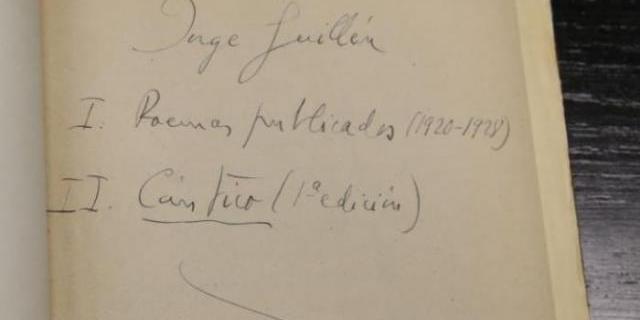 Jorge Guillén
I. Poemas publicados (1920-1928)
II. Cántico (1ª edición)